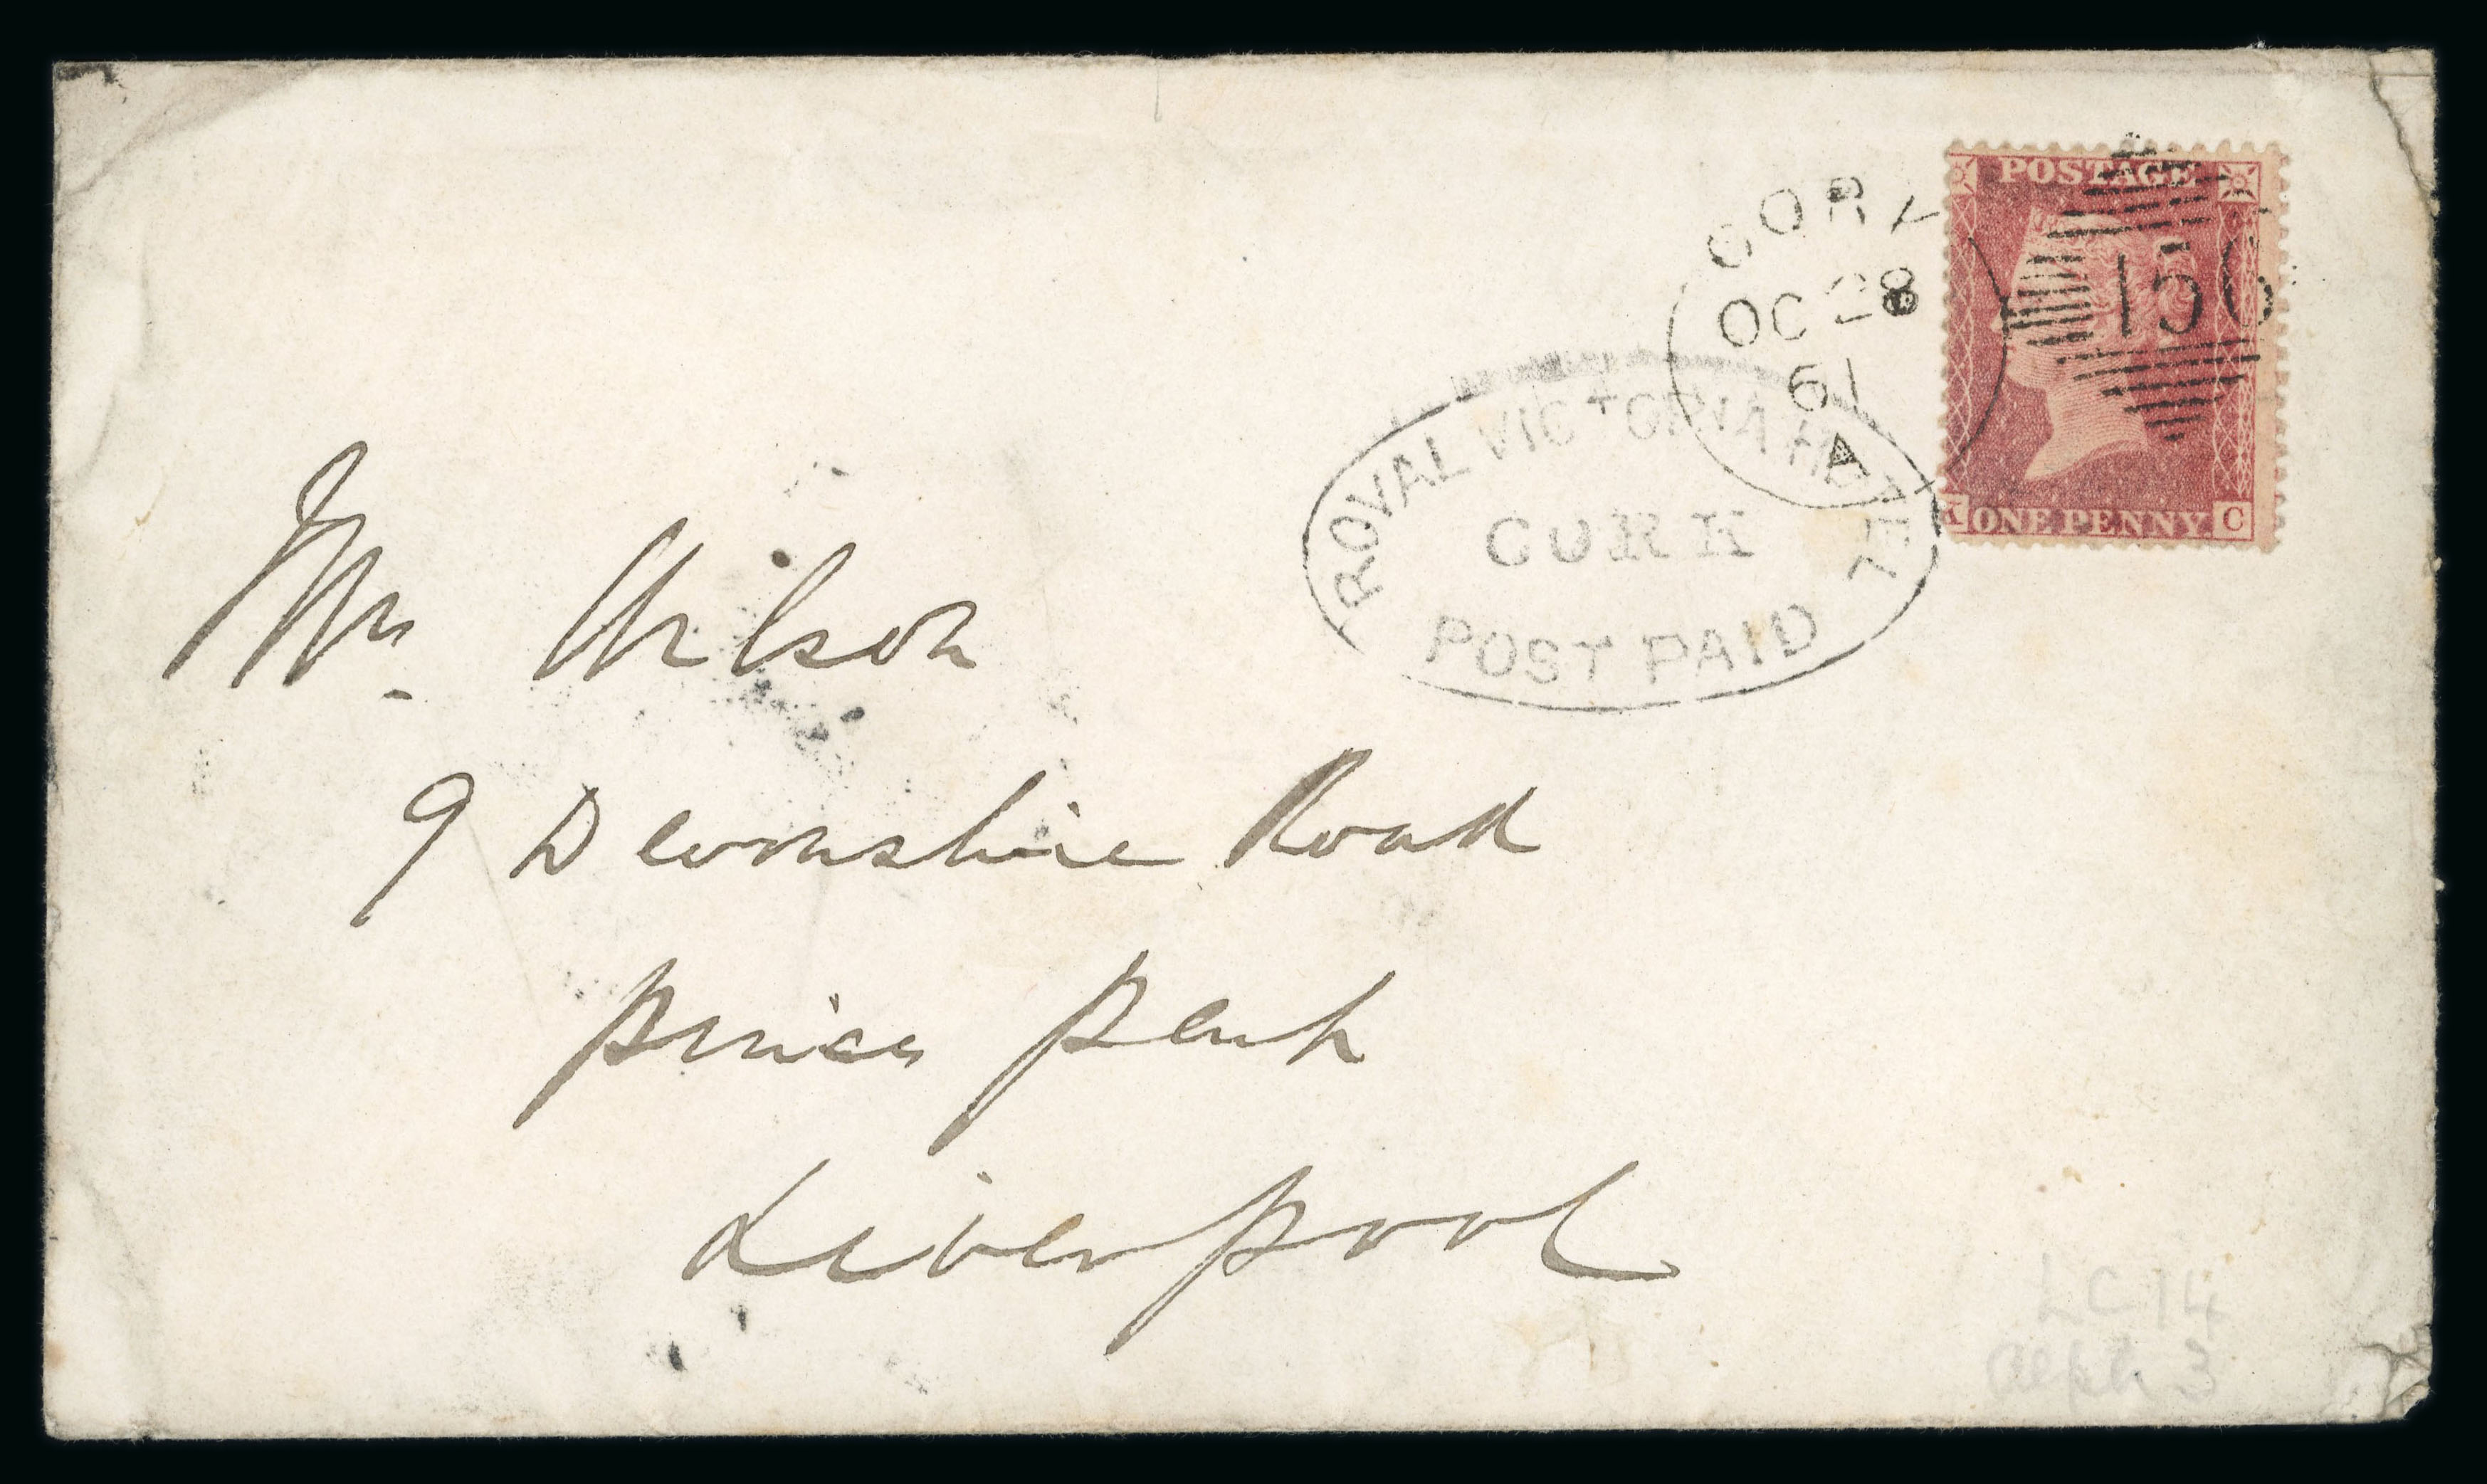 POSTAGE
CORK
OC 28
61
A
156
K ONE PENNY C
ROYAL VICTORIA HOTEL
CORK
POST PAID
Mrs Wilson
9 Devonshire Road
Princes Park
Liverpool
LC 14
Alph 3